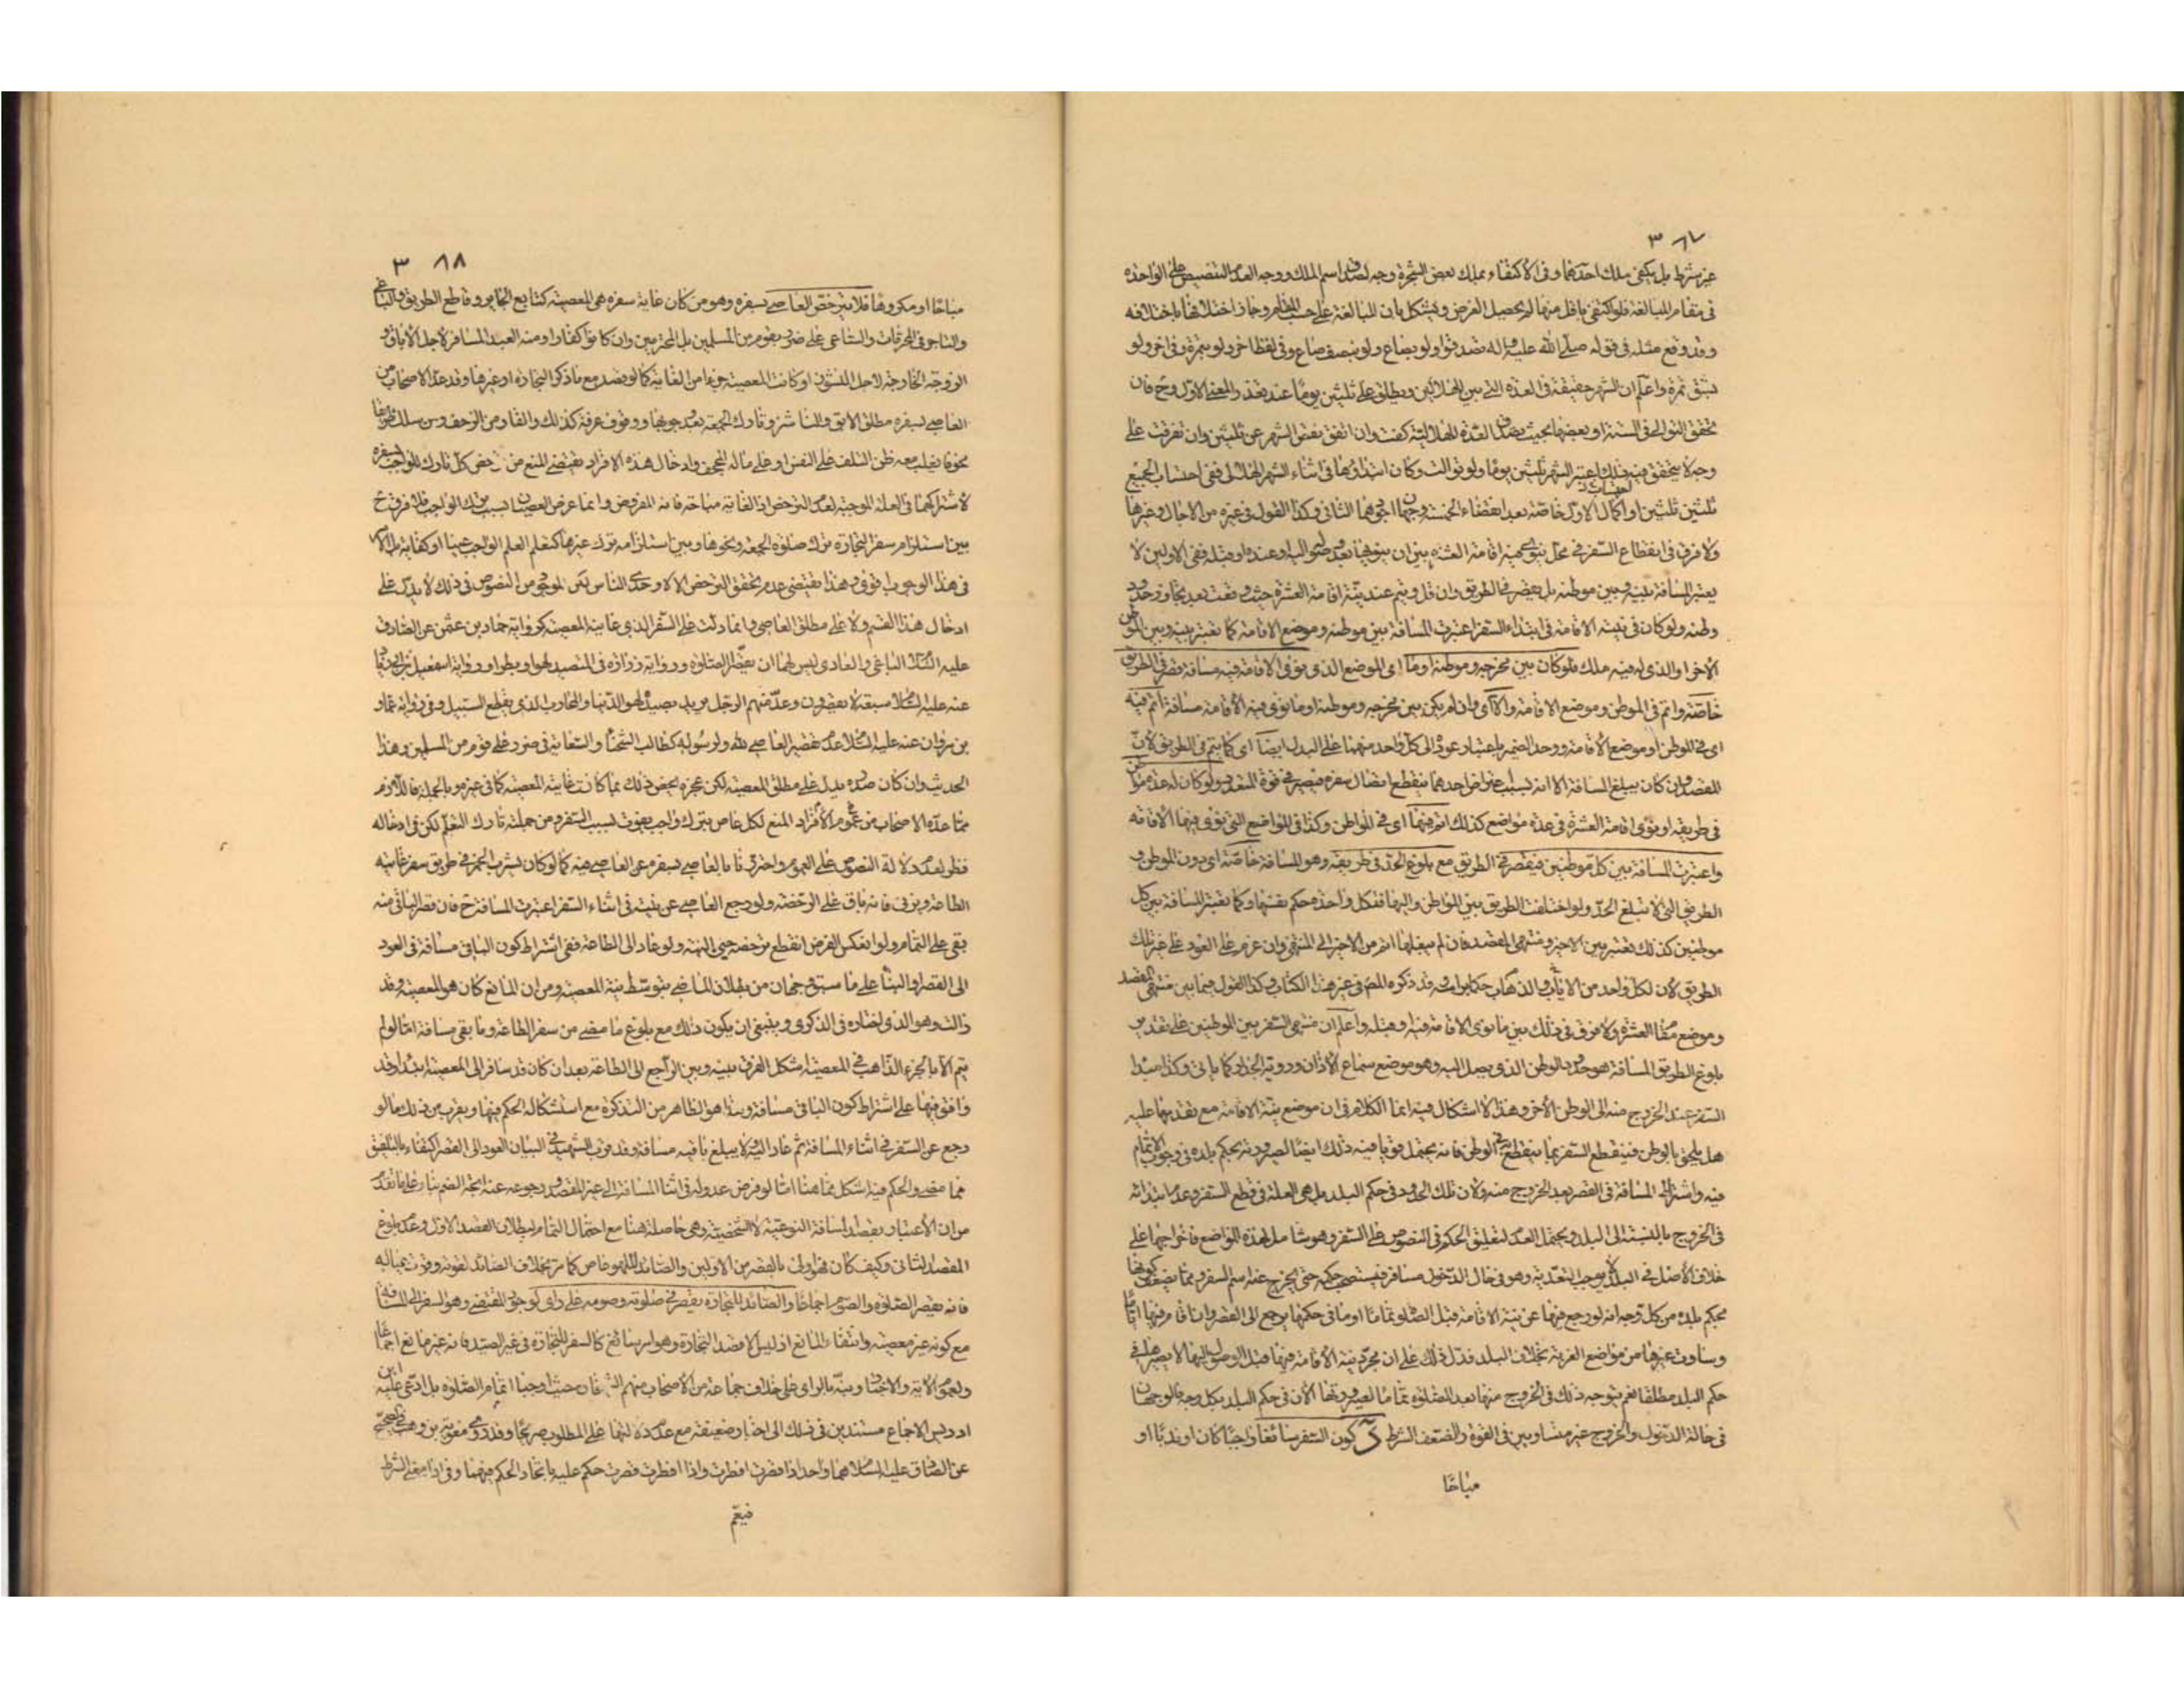 ٣٨٧
غير شرط بل يكفي ملك احدهما وفي الاكتفاء بملك بعض الشجرة وجه لصدق اسم الملك ووجه العدم التنصيص على الواحدة
في مقام المبالغة فلو اكتفى باقل منها لم يحصل الغرض ويشكل بان المبالغة على حسب المقام وجاز اختلافها باختلافه
وقد وقع مثله في قوله صلى الله عليه واله تصدقوا ولو بصاع ولو بنصف صاع وفي لفظ اخر ولو بتمرة وفي اخر ولو
بشق تمرة واعلم ان الشهر حقيقة في العدة التي بين الهلالين ويطلق على ثلثين يوما عند تعذر المعنى الاول وح فان
تحقق التوالي في السنة او بعضها بحيث يصدق العدة الهلالية كفت وان اتفق نقص الشهر عن ثلثين وان تفرقت على
وجه لا يتحقق فيه ذلك اعتبر الشهر ثلثين يوما ولو توالت وكان ابتداؤها في اثناء الشهر الهلالي ففي احتساب الجميع
ثلثين ثلثين او اكمال الاول خاصة بعد انقضاء الخمسة وجهان اجودهما الثاني وكذا القول في غيره من الاجال وغيرها
ولا فرق في انقطاع السفر في محل ينوى فيه اقامة العشرة بين ان ينويها بعد وصوله اليه او عنده او قبله ففي الاولين لا
يعتبر المسافة بينه وبين موطنه بل يقصر في الطريق وان قل ويتم عند نية اقامة العشرة حيث وقعت بعد تجاوز حدود
وطنه ولو كان في نيته الاقامة في ابتداء السفر اعتبرت المسافة بين موطنه وموضع الاقامة كما تعتبر بينه وبين الوطن
الاخر او الذي له فيه ملك فلو كان بين مخرجه وموطنه او ما اى الموضع الذي نوى الاقامة فيه مسافة قصر في الطريق
خاصة واتم في الموطن وموضع الاقامة والا اى وان لم يكن بين مخرجه وموطنه او ما نوى فيه الاقامة مسافة اتم فيه
اى في الموطن او موضع الاقامة ووحد الضمير باعتبار عوده الى كل واحد منهما على البدل ايضا اى كما يتم في الطريق لان
المقصد وان كان يبلغ المسافة الا انه بسبب عروض احدهما ينقطع اتصال سفره فيصير في قوة المتعدد ولو كان له عدة مواطن
في طريقه او نوى اقامة العشرة في عدة مواضع كذلك اتم فيها اى في المواطن وكذا في المواضع التي نوى فيها الاقامة
واعتبرت المسافة بين كل موطنين فيقصر في الطريق مع بلوغ الحد في طريقه وهو المسافة خاصة اى دون الموطن و
الطريق التي لا تبلغ الحد ولو اختلفت الطريق بين المواطن واليها فلكل واحدة حكم نفسها وكما تعتبر المسافة بين كل
موطنين كذلك تعتبر بين الاخير ومنتهى المقصد فان لم يبلغها اتم من الاخير الى المنتهى وان عزم على العود على غير تلك
الطريق لان لكل واحد من الاياب والذهاب حكما براسه وقد ذكره المص في غير هذا الكتاب وكذا القول فيما بين منتهى المقصد
وموضع مقام العشرة ولا فرق في ذلك بين ما نوى الاقامة فيه او قبله واعلم ان منتهى السفر بين الوطنين على تقدير
بلوغ الطريق المسافة هو حدود الوطن الذي يصل اليه وهو موضع سماع الاذان ورؤية الجدار كما ياتى وكذا مبدا
السفر عند الخروج منه الى الوطن الاخر وهذا لا اشكال فيه انما الكلام في ان موضع نية الاقامة مع تقدمها عليه
هل يلحق بالوطن فينقطع السفر بما ينقطع في الوطن فانه يحتمل قويا فيه ذلك ايضا لصيرورته بحكم بلده في وجوب الاتمام
فيه واشتراط المسافة في القصر بعد الخروج منه ولان تلك الحدود في حكم البلد بل هي العلة في قطع السفر وعدم ابتدائه
في الخروج بالنسبة الى البلد ويحتمل العدم لتعليق الحكم في النصوص على السفر وهو شامل لهذه المواضع فاخراجها على
خلاف الاصل في البلد لا يوجب التعدية وهو في حال الدخول مسافر فيستصحب حكمه حتى يخرج عنه اسم السفر ومما يضعف كونها
بحكم بلده من كل وجه انه لو رجع فيها عن نية الاقامة قبل الصلوة تماما او ما في حكمها يرجع الى القصر وان اقام فيها اياما
وساوت غيرها من مواضع الغربة بخلاف البلد فدل ذلك على ان مجرد نية الاقامة فيها قبل الوصول اليها لا يصيرها في
حكم البلد مطلقا نعم يتوجه ذلك في الخروج منها بعد الصلوة تماما لصيرورتها الان في حكم البلد بكل وجه فالوجهان
في حالة الدخول والخروج غير متساويين في القوة والضعف الشرط كون السفر سائغا واجبا كان او ندبا او
مباحا
٣٨٨
مباحا او مكروها فلا يترخص العاصي بسفره وهو من كان غاية سفره هي المعصية كتابع الجاير وقاطع الطريق والباغي
والتاجر في المحرمات والساعي على ضرر بقوم من المسلمين بل المحترمين وان كانوا كفارا ومنه العبد المسافر لاجل الاباق و
الزوجة الخارجة لاجل النشوز او كانت المعصية جزءا من الغاية كما لو قصد مع ما ذكر التجارة او غيرها وقد عد الاصحاب من
العاصي بسفره مطلق الابق والناشز وتارك الجمعة بعد وجوبها ووقوف عرفة كذلك والفار من الزحف ومن سلك طريقا
مخوفا يغلب معه ظن التلف على النفس او على ماله المجحف وادخال هذه الافراد يقتضي المنع من ترخص كل تارك للواجب بسفره
لاشتراكهما في العلة الموجبة لعدم الترخص اذ الغاية مباحة فانه المفروض وانما عرض العصيان بسبب ترك الواجب فلا فرق ح
بين استلزام سفر التجارة ترك صلوة الجمعة ونحوها وبين استلزامه ترك غيرها كتعلم العلم الواجب عينا او كفاية بل الامر
في هذا الوجوب اقوى وهذا يقتضي عدم تحقق الترخص الا لاوحدي الناس لكن الموجود من النصوص في ذلك لا يدل على
ادخال هذا القسم ولا على مطلق العاصي وانما دلت على السفر الذي غايته المعصية كرواية حماد بن عثمن عن الصادق
عليه السلام الباغي والعادي ليس لهما ان يقصرا الصلوة ورواية زرارة في المتصيد لهوا وبطرا ورواية اسمعيل بن ابي زياد
عنه عليه السلام سبعة لا يقصرون وعد منهم الرجل يريد بصيده لهو الدنيا والمحارب الذي يقطع السبيل وفي رواية عمار
بن مروان عنه عليه السلام عد منهم العاصي لله ولرسوله كطالب الشحناء والسعاية في ضرر على قوم من المسلمين وهذا
الحديث وان كان صدره يدل على مطلق المعصية لكن عجزه يخص ذلك بما كانت غايته المعصية كما في غيره وبالجملة فاللازم
مما عده الاصحاب من عموم الافراد المنع لكل عاص بترك واجب يفوت بسبب السفر ومن جملته تارك التعلم لكن في ادخاله
نظر لعدم دلالة النصوص على العموم واحترزنا بالعاصي بسفره عن العاصي فيه كما لو كان يشرب الخمر في طريق سفر غايته
الطاعة ويزني فانه باق على الرخصة ولو رجع العاصي عن نيته في اثناء السفر اعتبرت المسافة ح فان قصر الباقى منه
بقي على التمام ولو انعكس الفرض انقطع ترخصه حين النية ولو عاد الى الطاعة ففي اشتراط كون الباقي مسافة في العود
الى القصر او البناء على ما سبق وجهان من بطلان الماضي بتوسط نية المعصية ومن ان المانع كان هو المعصية وقد
زالت وهو الذي اختاره في الذكرى وينبغي ان يكون ذلك مع بلوغ ما مضى من سفر الطاعة وما بقي مسافة اما لو لم
يتم الا بالجزء الذاهب في المعصية اشكل الفرق بينه وبين الراجع الى الطاعة بعد ان كان قد سافر الى المعصية ابتداء وقد
وافق فيها على اشتراط كون الباقى مسافة وهذا هو الظاهر من التذكرة مع استشكاله الحكم فيها ويقرب من ذلك ما لو
رجع عن السفر في اثناء المسافة ثم عاد اليه ولا يبلغ باقيه مسافة وقد قرب الشهيد في البيان العود الى القصر اكتفاء بالتلفيق
مما مضى والحكم فيه اشكل مما هنا اما لو فرض عدوله في اثناء المسافة الى غير المقصد ورجوعه عنه اتجه الضم بناء على ما تقدم
من ان الاعتبار بقصد المسافة النوعية لا الشخصية وهي حاصلة هنا مع احتمال التمام لبطلان القصد الاول وعدم بلوغ
المقصد الثاني وكيف كان فهو اولى بالقصر من الاولين والصائد للهو عاص كما مر بخلاف الصائد لقوته وقوت عياله
فانه يقصر الصلوة والصوم اجماعا والصائد للتجارة يقصر في صلوته وصومه على راى لوجود المقتضي وهو السفر الى المسافة
مع كونه غير معصية وانتفاء المانع اذ ليس الا قصد التجارة وهو امر سائغ كالسفر للتجارة في غير الصيد فانه غير مانع اجماعا
ولعموم الاية والاخبار ونبه بالراى على خلاف جماعة من الاصحاب منهم الشيخان حيث اوجبا اتمام الصلوة بل ادعى عليه ابن
ادريس الاجماع مستندين في ذلك الى اخبار ضعيفة مع عدم دلالتها على المطلوب صريحا وقد روى معوية بن وهب في الصحيح
عن الصادق عليه السلام هما واحد اذا قصرت افطرت واذا افطرت قصرت حكم عليه باتحاد الحكم فيهما وفي اذا معنى الشرط
فيعم